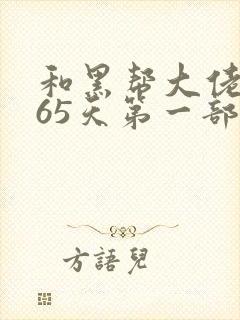 和黑帮大佬
65天第一部
方語兒